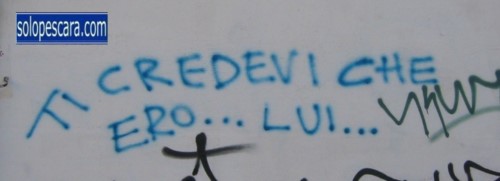 solopescara.com
TI CREDEVI CHE
ERO... LUI...